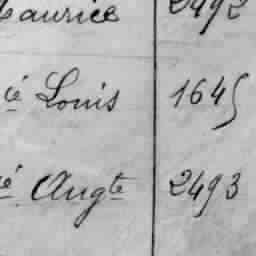 Maurice 2492
ié Louis 1645
ié Augte 2493